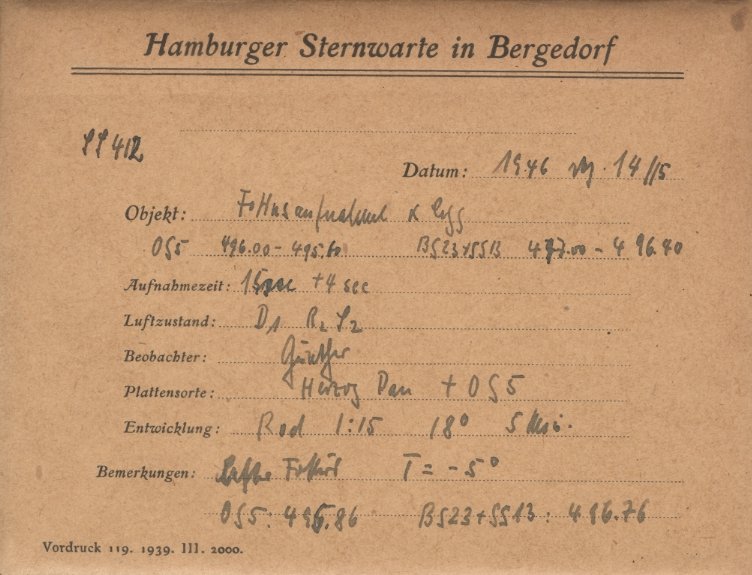 Hamburger Sternwarte in Bergedorf
412
Datum: 1946 14/15
Objekt: Fokusaufnahme
OG5 496.00 - 495.60 BG23+GG13 477.00 - 496.40
Aufnahmezeit: +4 sec
Luftzustand: D1 R2 S2
Beobachter: Günther
Plattensorte: Herzog Pan + OG5
Entwicklung: Rod 1:15 18° 5 Min.
Bemerkungen: Fokus T = -5°
OG5: 496.86 BG23+GG13: 496.76
Vordruck 119. 1939. III. 2000.